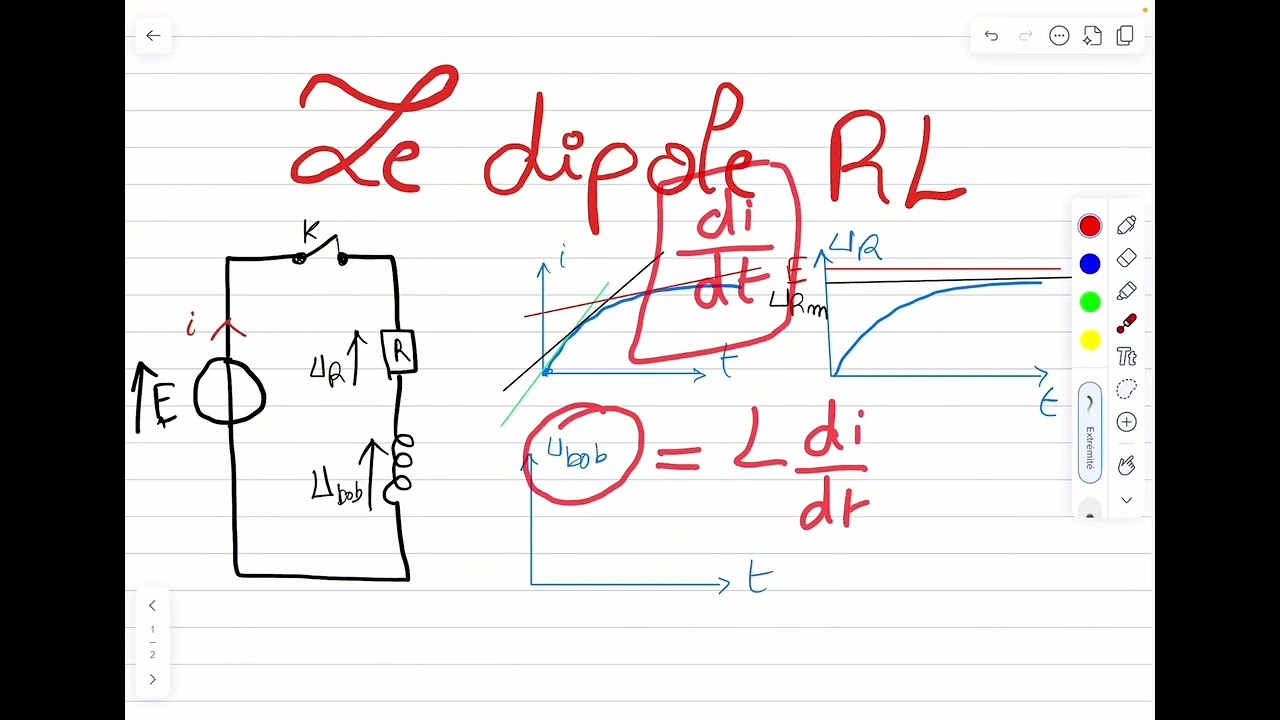 Le dipole RL
K
i
E
U_R
R
U_bob
i
di
dt
t
U_R
E
U_Rm
t
U_bob = L di
dt
t
Extrémité
1
2
Tt